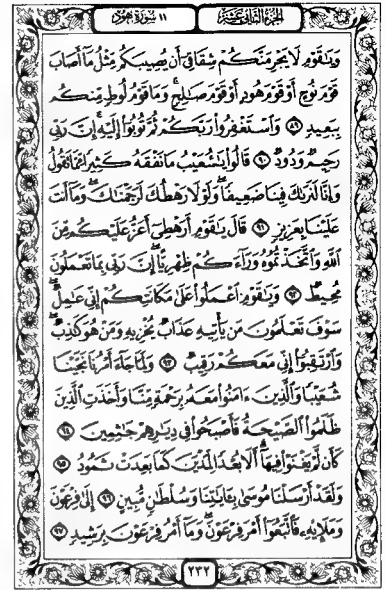 الجزء الثاني عشر ١١ سورة هود
وَيَٰقَوْمِ لَا يَجْرِمَنَّكُمْ شِقَاقِىٓ أَن يُصِيبَكُم مِّثْلُ مَآ أَصَابَ
قَوْمَ نُوحٍ أَوْ قَوْمَ هُودٍ أَوْ قَوْمَ صَٰلِحٍ ۚ وَمَا قَوْمُ لُوطٍ مِّنكُم
بِبَعِيدٍ ٨٩ وَٱسْتَغْفِرُوا۟ رَبَّكُمْ ثُمَّ تُوبُوٓا۟ إِلَيْهِ ۚ إِنَّ رَبِّى
رَحِيمٌ وَدُودٌ ٩٠ قَالُوا۟ يَٰشُعَيْبُ مَا نَفْقَهُ كَثِيرًا مِّمَّا تَقُولُ
وَإِنَّا لَنَرَىٰكَ فِينَا ضَعِيفًا ۖ وَلَوْلَا رَهْطُكَ لَرَجَمْنَٰكَ ۖ وَمَآ أَنتَ
عَلَيْنَا بِعَزِيزٍ ٩١ قَالَ يَٰقَوْمِ أَرَهْطِىٓ أَعَزُّ عَلَيْكُم مِّنَ
ٱللَّهِ وَٱتَّخَذْتُمُوهُ وَرَآءَكُمْ ظِهْرِيًّا ۖ إِنَّ رَبِّى بِمَا تَعْمَلُونَ
مُحِيطٌ ٩٢ وَيَٰقَوْمِ ٱعْمَلُوا۟ عَلَىٰ مَكَانَتِكُمْ إِنِّى عَٰمِلٌ ۖ
سَوْفَ تَعْلَمُونَ مَن يَأْتِيهِ عَذَابٌ يُخْزِيهِ وَمَنْ هُوَ كَٰذِبٌ ۖ
وَٱرْتَقِبُوٓا۟ إِنِّى مَعَكُمْ رَقِيبٌ ٩٣ وَلَمَّا جَآءَ أَمْرُنَا نَجَّيْنَا
شُعَيْبًا وَٱلَّذِينَ ءَامَنُوا۟ مَعَهُۥ بِرَحْمَةٍ مِّنَّا وَأَخَذَتِ ٱلَّذِينَ
ظَلَمُوا۟ ٱلصَّيْحَةُ فَأَصْبَحُوا۟ فِى دِيَٰرِهِمْ جَٰثِمِينَ ٩٤
كَأَن لَّمْ يَغْنَوْا۟ فِيهَآ ۗ أَلَا بُعْدًا لِّمَدْيَنَ كَمَا بَعِدَتْ ثَمُودُ ٩٥
وَلَقَدْ أَرْسَلْنَا مُوسَىٰ بِـَٔايَٰتِنَا وَسُلْطَٰنٍ مُّبِينٍ ٩٦ إِلَىٰ فِرْعَوْنَ
وَمَلَإِي۟هِۦ فَٱتَّبَعُوٓا۟ أَمْرَ فِرْعَوْنَ ۖ وَمَآ أَمْرُ فِرْعَوْنَ بِرَشِيدٍ ٩٧
٢٣٢